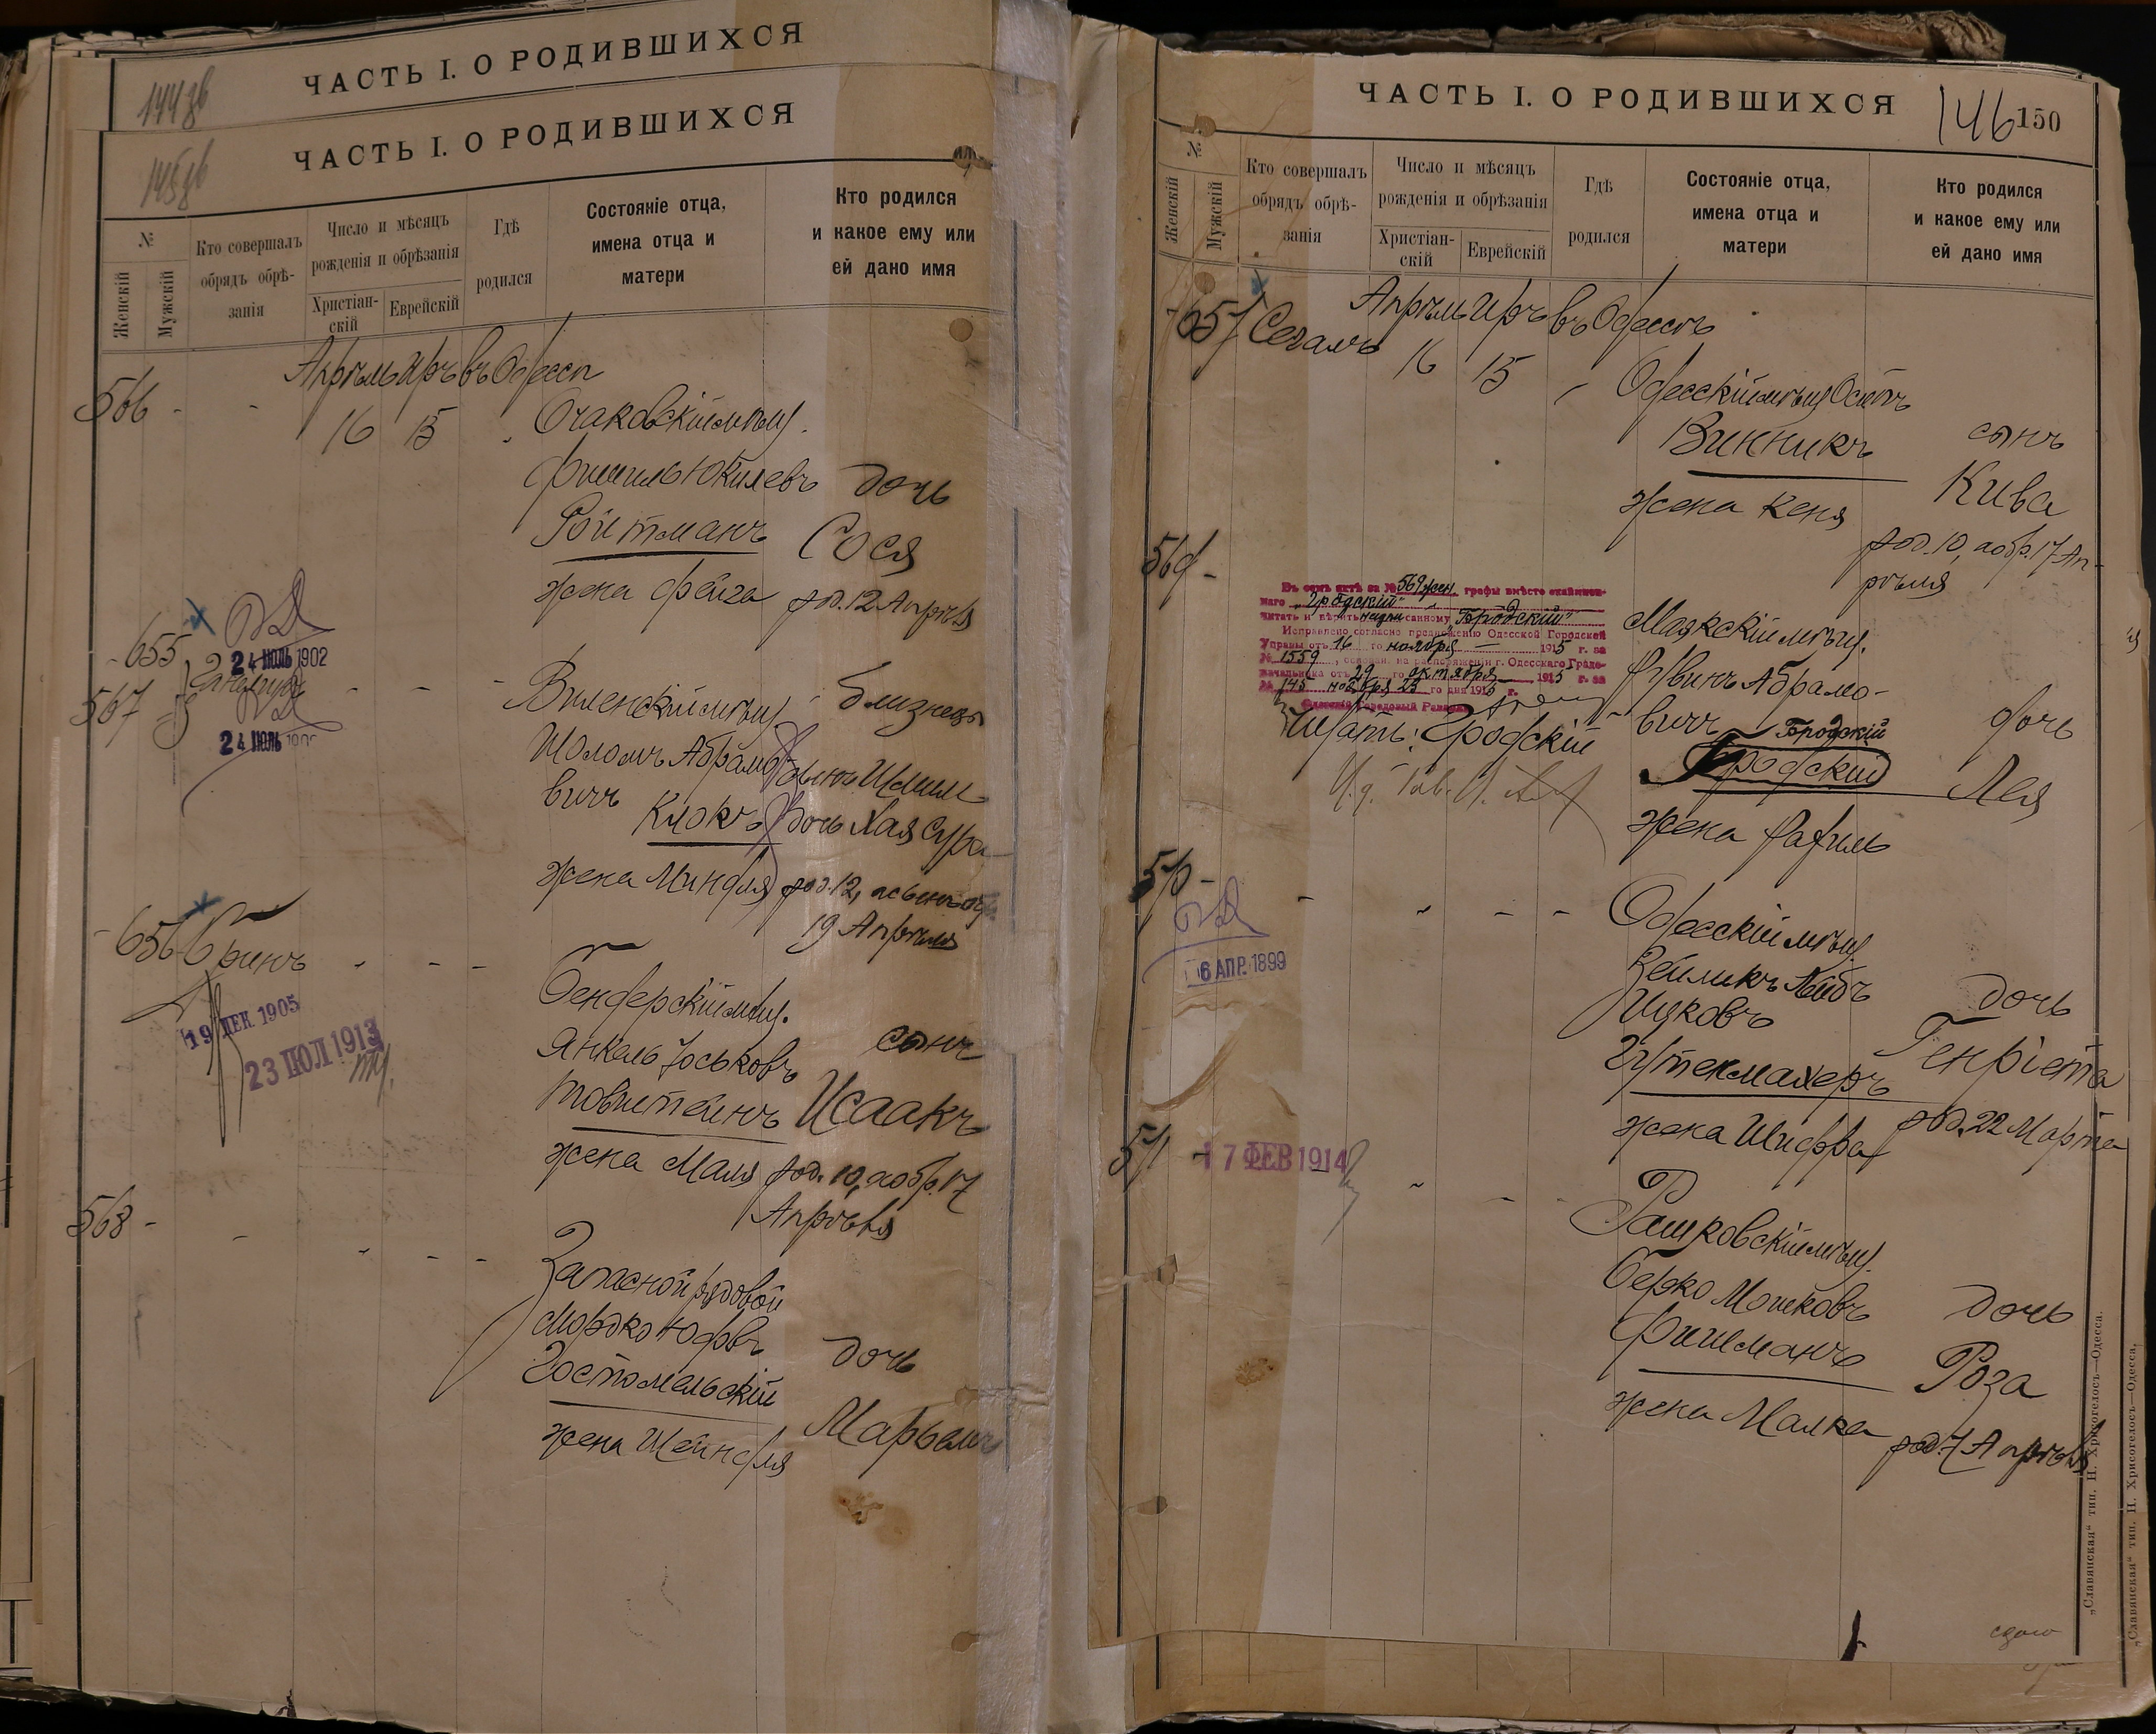 ЧАСТЬ I. О РОДИВШИХСЯ
144 об
ЧАСТЬ I. О РОДИВШИХСЯ
145 об
№
Женскій
Мужскій
Кто совершалъ
обрядъ обрѣ-
занія
Число и мѣсяцъ
рожденія и обрѣзанія
Христіан-
скій
Еврейскій
Гдѣ
родился
Состояніе отца,
имена отца и
матери
Кто родился
и какое ему или
ей дано имя
Апрѣль Иръ въ Одессѣ
566 - -
16 15
Очаковскій мѣщ.
Фишель Юкилевъ
Ройтманъ
жена Фейга
дочь
Сося
род. 12 Апрѣля
655
567
24 ІЮЛЬ 1902
24 ІЮЛЬ
Виленскій мѣщ.
Шоломъ Абрамо
вичъ Клокъ
жена Миндля
близнецы
дочь Хая Сура
род. 12,
19 Апрѣля
656 Гринъ
19 ДЕК 1905
23 ІЮЛ 1913
Бендерскій мѣщ.
Янкель Іоськовъ
Товштейнъ
жена Маля
сынъ
Исаакъ
род. 10, а обр. 17
Апрѣля
568 -
Запасной рядовой
Мордко Юдовъ
Гостомельскій
жена Шейндля
дочь
Марьямъ
ЧАСТЬ I. О РОДИВШИХСЯ
146 150
№
Женскій
Мужскій
Кто совершалъ
обрядъ обрѣ-
занія
Число и мѣсяцъ
рожденія и обрѣзанія
Христіан-
скій
Еврейскій
Гдѣ
родился
Состояніе отца,
имена отца и
матери
Кто родился
и какое ему или
ей дано имя
657 Сегалъ
Апрѣль Иръ въ Одессѣ
16 15
Одесскій мѣщ. Осипъ
Винникъ
жена Кеня
сынъ
Кива
род. 10, а обр. 17 Ап-
рѣля
569 -
Въ семъ актѣ за № 569 жен. графы вмѣсто
„Гродскій"
читать и написанному „Бродскій"
Исправлено согласно предложенію Одесской Городской
Управы отъ 16 го ноября 1915 г. за
№ 1559, основан. на распоряженіи г. Одесскаго Градо-
начальника отъ 29 го октября 1915 г. за
№ 145 ноября 23 го дня 1915 г.
Одесскій Городовый Раввинъ
Читать: Гродскій
Маякскій мѣщ.
Рувинъ Абрамо-
вичъ Бродскій
Гродскій
жена Рахиль
дочь
Лея
570 -
6 АПР. 1899
Одесскій мѣщ.
Зейликъ Лейбъ
Ицковъ
Гутенмахеръ
жена Шифра
дочь
Генріета
род. 22 Марта
571 -
17 ФЕВ 1914
Рашковскій мѣщ.
Берко Мошковъ
Фишманъ
жена Малка
дочь
Роза
род. 7 Апрѣля
„Славянская" тип. Н. Хрисогелосъ—Одесса.
„Славянская" тип. Н. Хрисогелосъ—Одесса.